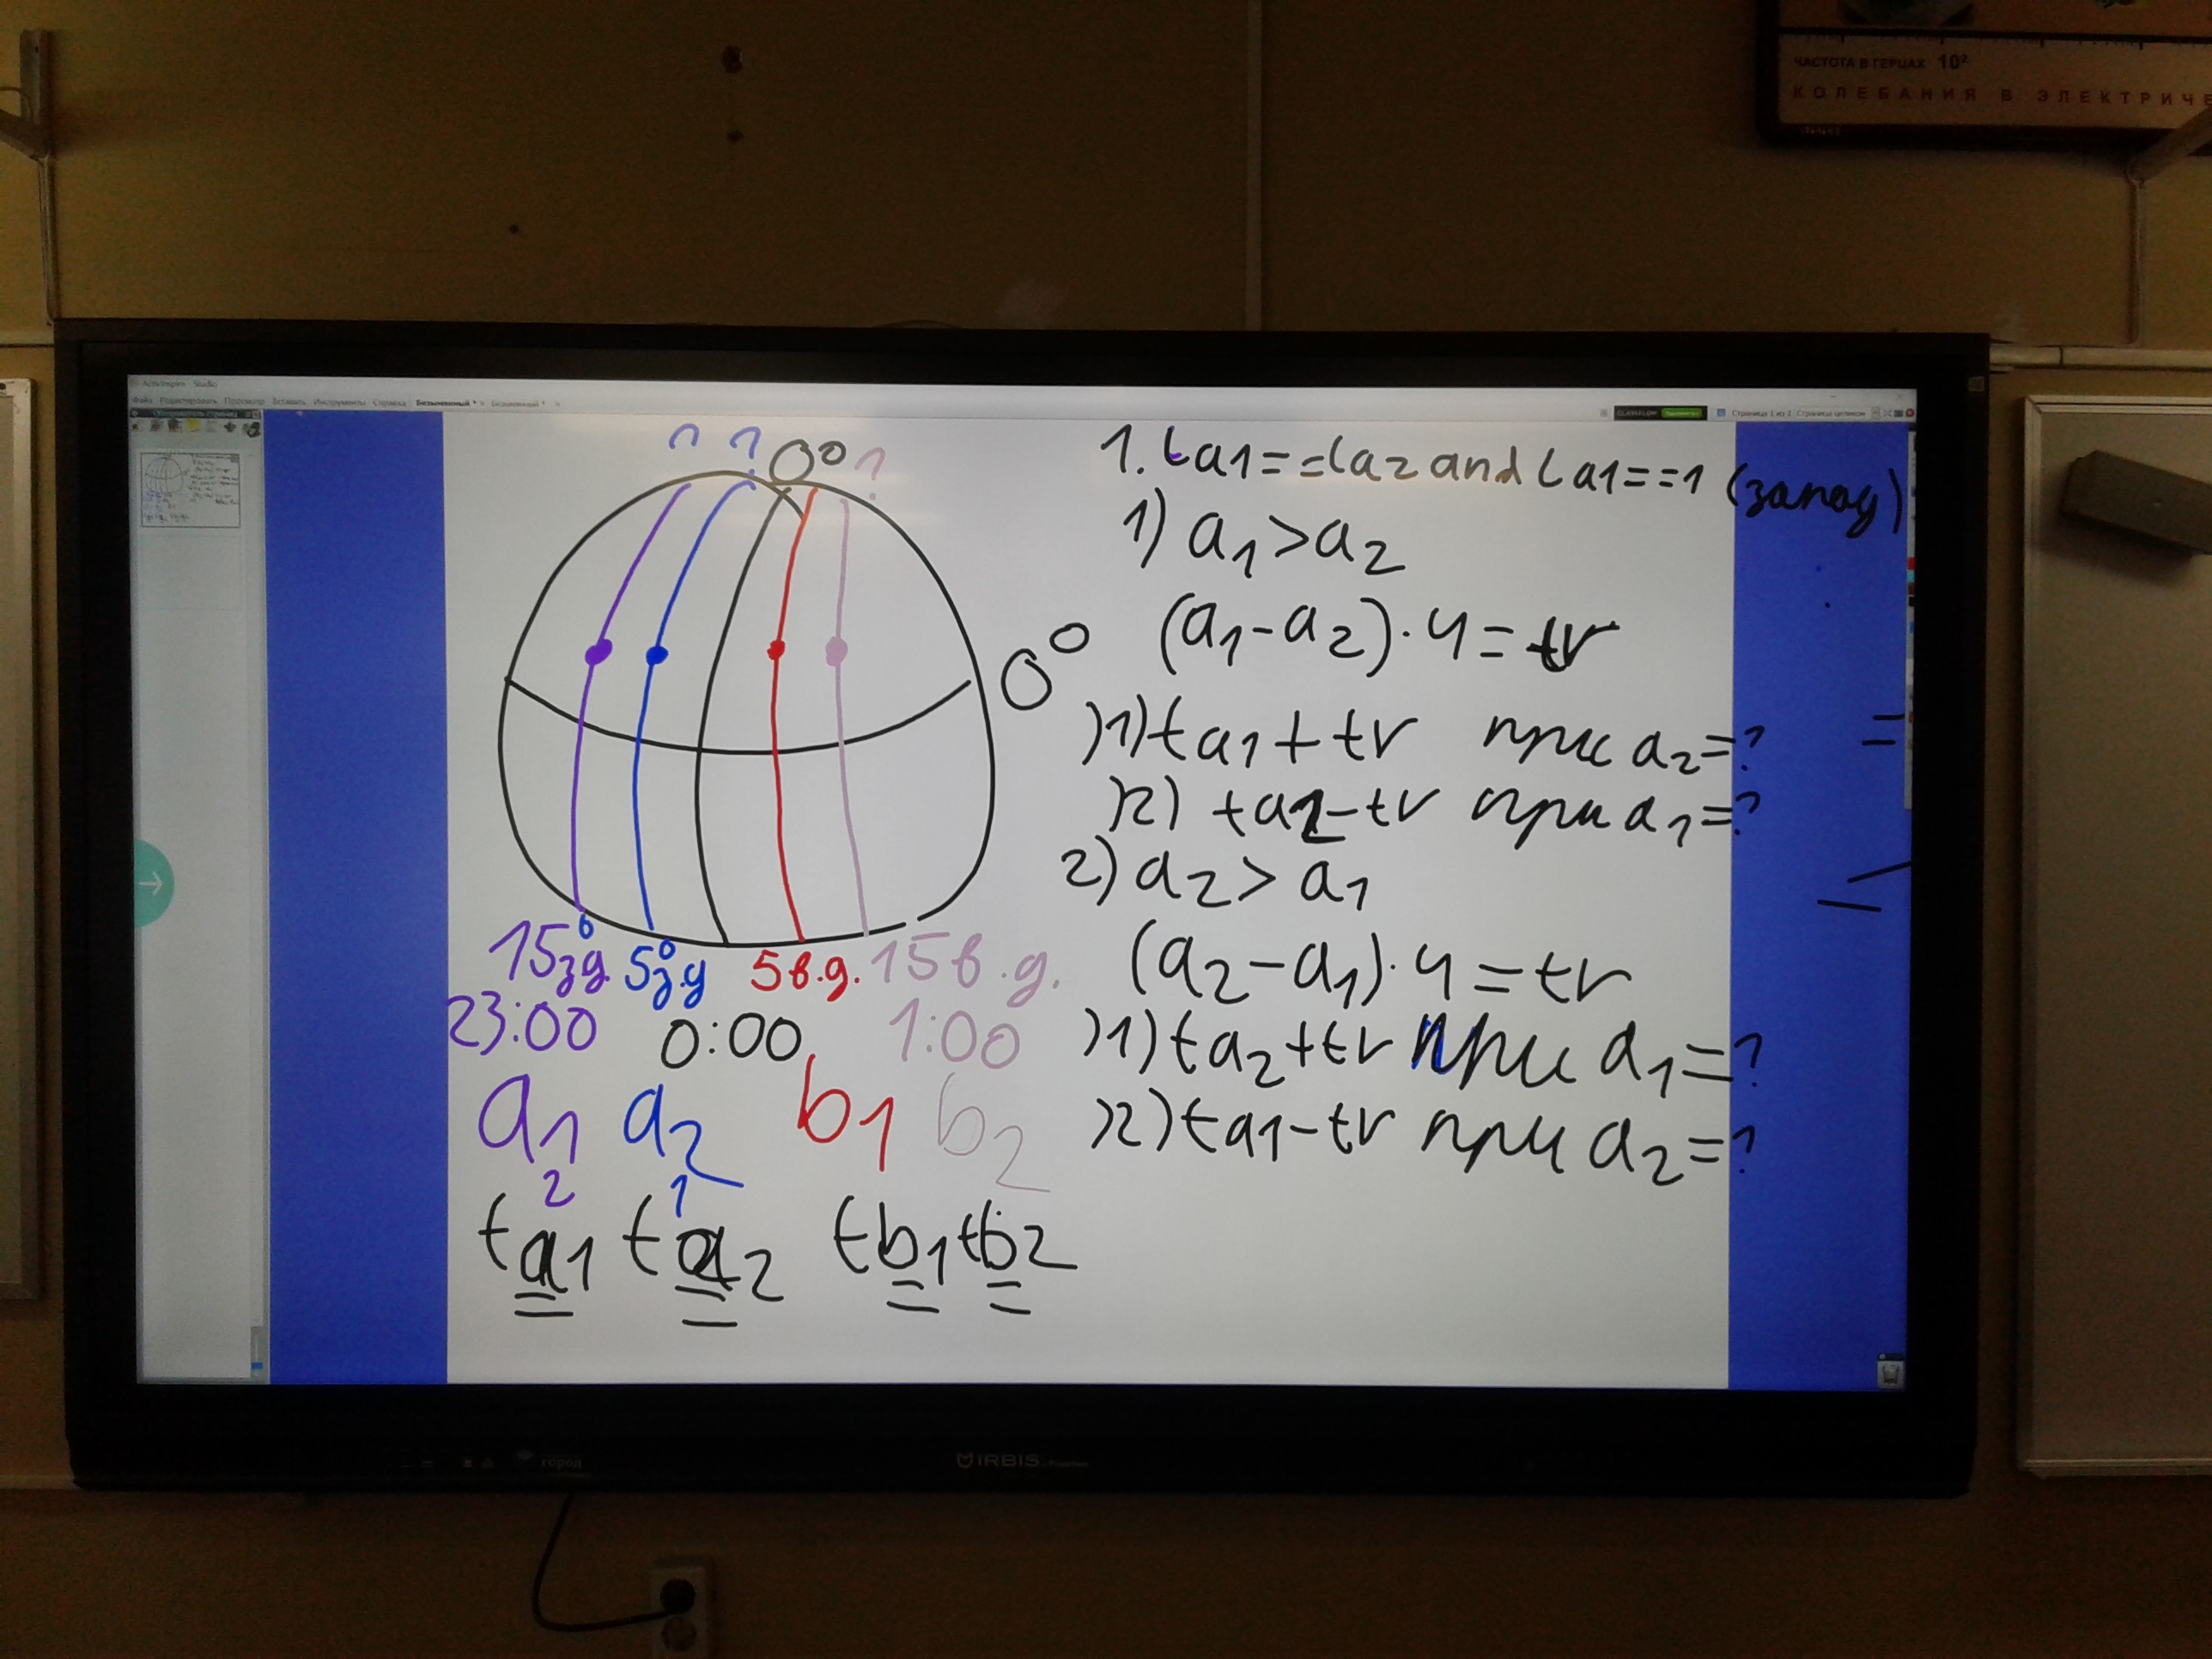 ЧАСТОТА В ГЕРЦАХ 10²
КОЛЕБАНИЯ В ЭЛЕКТРИЧЕ
ActivInspire - Studio
Файл Редактировать Просмотр Вставить Инструменты Справка Безымянный * Безымянный *
Страница 1 из 2 Страница целиком
? ? 0° ?
0°
15° з.д. 5° з.д 5 в.д. 15 в.д.
23:00 0:00 1:00
a1 a2 b1 b2
2 1
ta1 ta2 tb1 tb2
1. La1==La2 and La1==1 (запад)
1) a1>a2
(a1-a2)·4=tr
)1) ta1+tr при a2=?
)2) ta2-tr при a1=?
2) a2>a1
(a2-a1)·4=tr
)1) ta2+tr при a1=?
)2) ta1-tr при a2=?
город
IRBIS